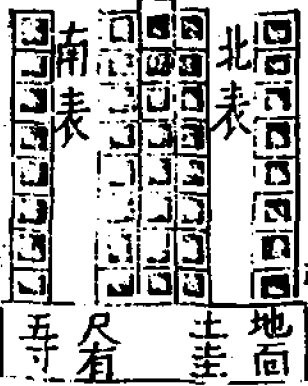 北表
南表
地面
土圭
尺有
五寸